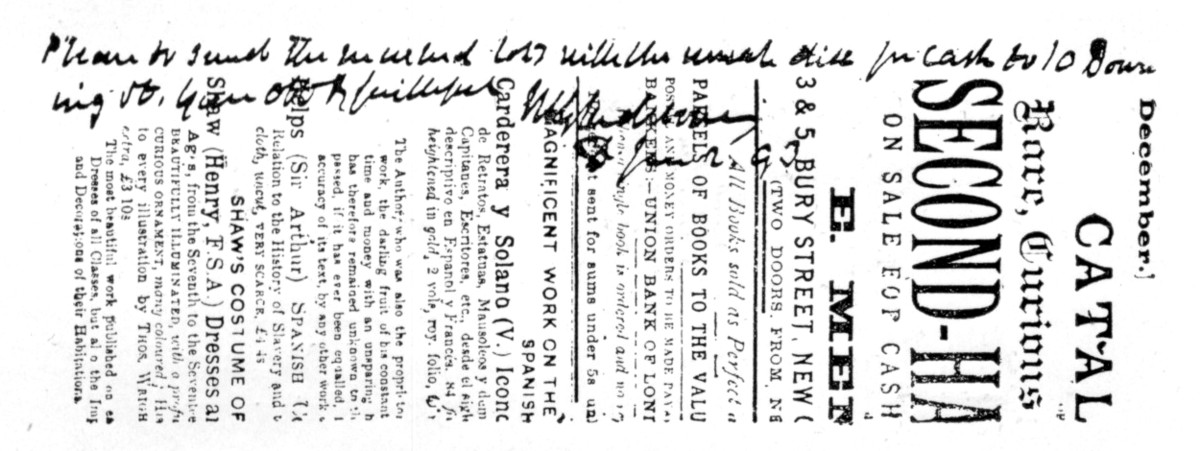 Please to send the marked lots with the usual disc for cash to 10 Down
ing St. Your obt & faithful
Jan 2. 93
December.]
CATAL
Rare, Curious
SECOND-HA
ON SALE FOR CASH
E. MER
3 & 5, BURY STREET, NEW
(TWO DOORS FROM
All Books sold as Perfect
PARCELS OF BOOKS TO THE VALU
POST AND MONEY ORDERS TO BE MADE PAYA
BANKERS:—UNION BANK OF LON
single book is ordered and no
sent for sums under 5s
MAGNIFICENT WORK ON THE
SPANISH
Carderera y Solano (V.) Icono
de Retratos, Estatuas, Mausoleos y dem
Capitanes, Escritores, etc., desde el sigl
descriptivo en Espanol y Francés, 84
heightened in gold, 2 vols, roy. folio,
The Author, who was also the proprietor
work, the darling fruit of his constant
time and money with an unsparing h
has therefore remained unknown to th
passed, if it has ever been equalled, i
accuracy of its text, by any other work
Helps (Sir Arthur) SPANISH
Relation to the History of Slavery and t
cloth, uncut, VERY SCARCE, £4 4s
SHAW'S COSTUME OF
Shaw (Henry, F.S.A.) Dresses a
Ages, from the Seventh to the Sevente
BEAUTIFULLY ILLUMINATED, with a profu
CURIOUS ORNAMENT, many coloured; His
to every illustration by THOS. WRIGH
extra, £3 10s
The most beautiful work published on
Dresses of all Classes, but also the
and Decorations of their Habitations.